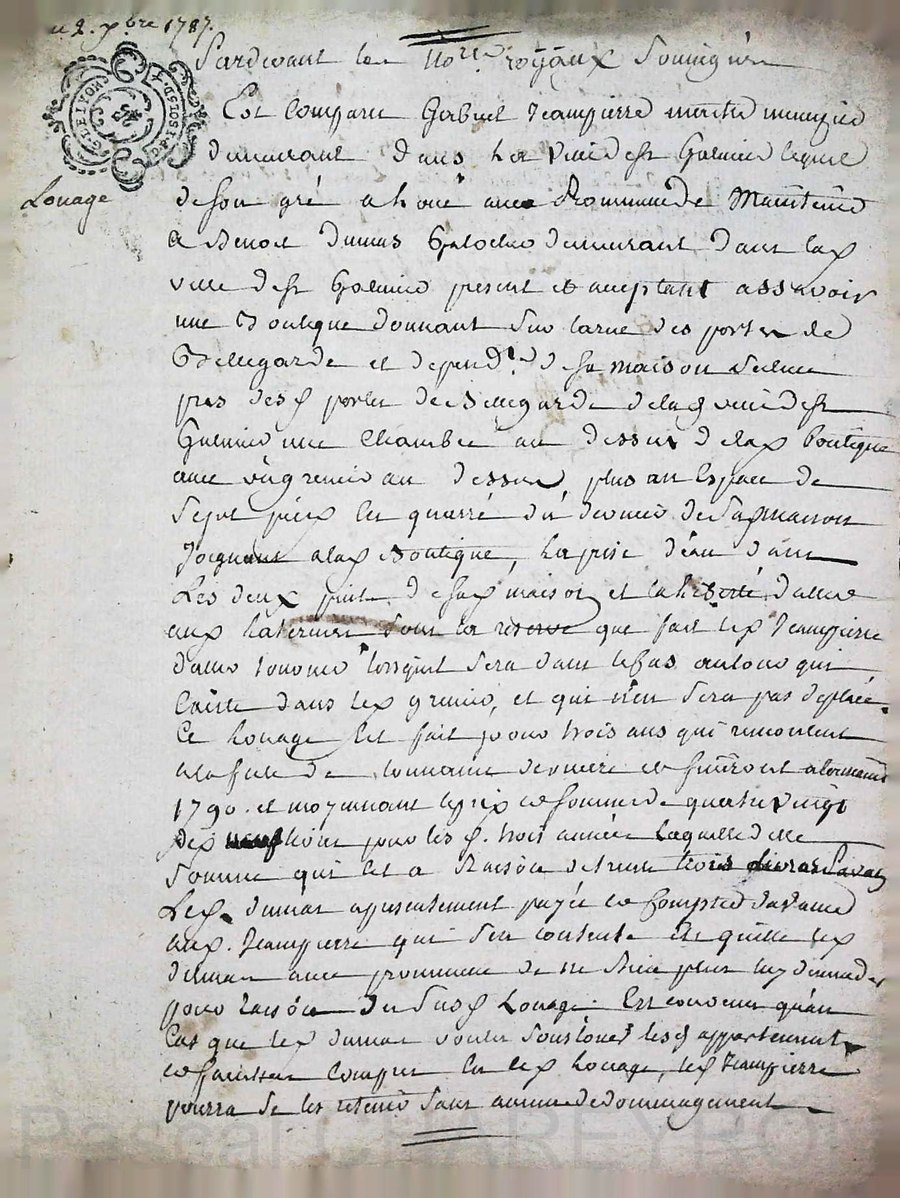 u 2. xbre 1787.
Pardevant les Nores. royaux Soussignés
GÉN. DE LYON
Est comparu Gabriel Jeampierre maitre menuzier
demeurant dans la ville de st Galmier lequel
Louage
de son gré a loué avec Promesse de Maintenir
a Benoit Dumas Galochier demeurant dans lad
ville de st Galmier present et acceptant assavoir
une Boutique donnant sur la rue des portes de
Bellegarde et depend.te de sa maison scituée
pres desd portes de Bellegarde de lad ville de st
Galmier une Chambre au dessus de lad boutique
avec un grenier au dessus plus un Espace de
Sept pieds en quarré du derrier de Sad maison
Joignant a lad Boutique, la prise d'eau dans
Les deux puits de sad maison et la liberté d'aller
aux latrines sous la reserve que fait led Jeampierre
dans led grenier, et qui n'en sera pas deplacé.
Ce Louage Est fait pour trois ans qui
a la fete de toussaint derniere et finiront a la toussaint
1790. et moyennant le prix et somme de quatre vingt
dix neuf livres pour les d. trois année laquelle
Somme qui Est a Raison de trente trois livres par an
Led. dumas a presentement payée et Comptée d'avance
aud. Jeampierre qui s'en contente En quitte led
dumas avec promesse de ne Rien plus luy demander
pour raison du Susd Louage. Est convenu qu'en
Cas que led dumas voulut Souslouer lesd appartements
led Louage, led Jeampierre
pourra se les retenir sans aucun dedommagement
Pascal CHAREYRON